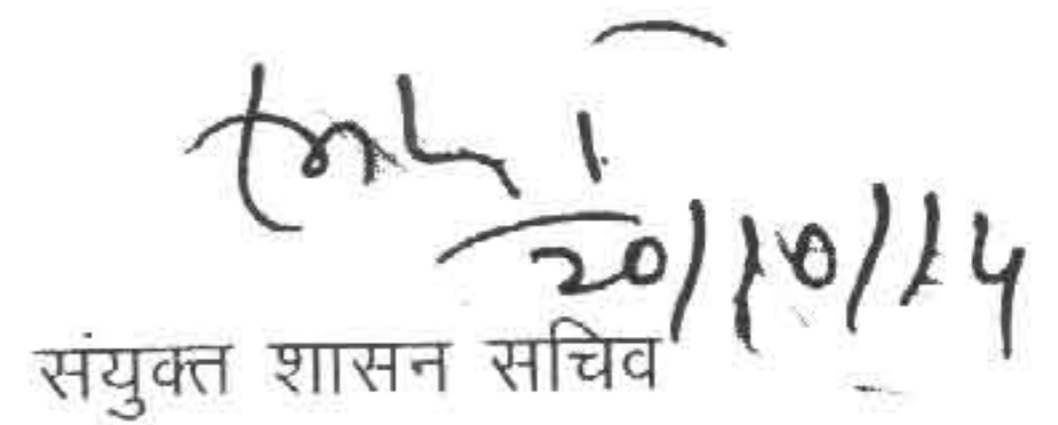 20/10/14
संयुक्त शासन सचिव